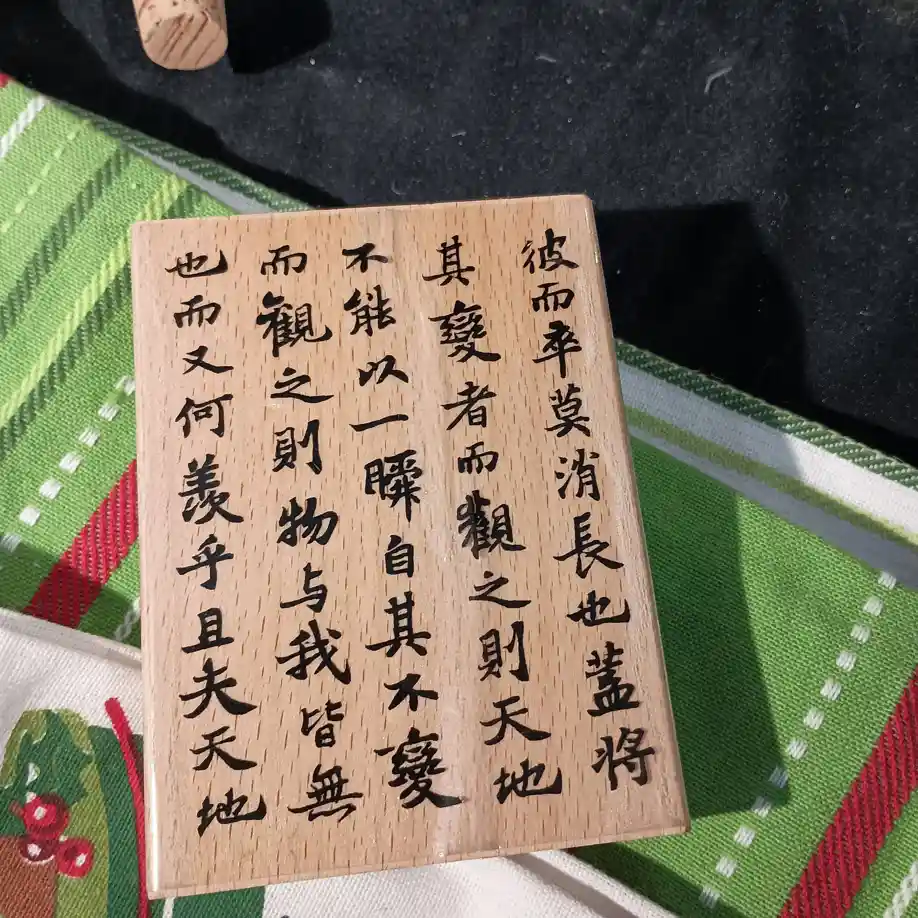 彼而卒莫消長也蓋將
其變者而觀之則天地
不能以一瞬自其不變
而觀之則物与我皆無
也而又何羨乎且夫天地